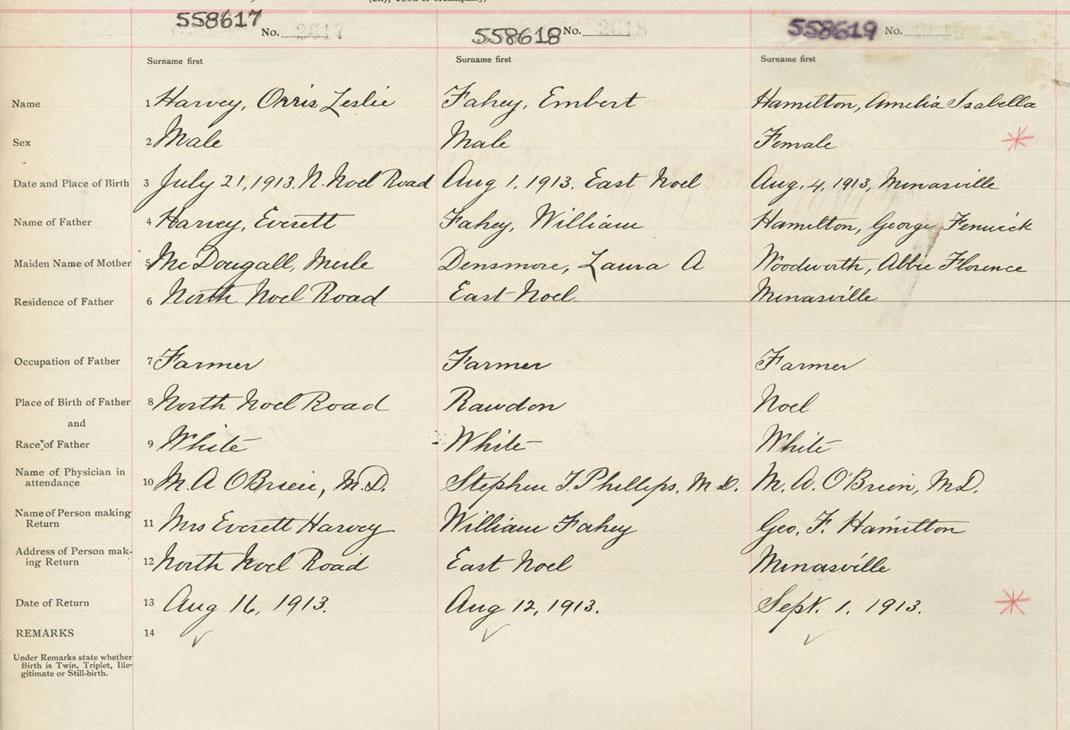 558617 No. 2617 558618 No. 2618 558619 No.
Surname first Surname first Surname first
Name 1 Harvey, Orris Leslie Fahey, Embert Hamilton, Amelia Isabella
Sex 2 Male Male Female
Date and Place of Birth 3 July 21, 1913. N. Noel Road Aug 1, 1913. East Noel Aug. 4, 1913, Minasville
Name of Father 4 Harvey, Everett Fahey, William Hamilton, George Fenwick
Maiden Name of Mother 5 McDougall, Merle Densmore, Laura A Woodworth, Abbie Florence
Residence of Father 6 North Noel Road East Noel Minasville
Occupation of Father 7 Farmer Farmer Farmer
Place of Birth of Father 8 North Noel Road Rawdon Noel
and
Race of Father 9 White White White
Name of Physician in
attendance 10 M. A O'Brien, M.D. Stephen T. Phillips, M.D. M. A. O'Brien, M.D.
Name of Person making
Return 11 Mrs Everett Harvey William Fahey Geo. F. Hamilton
Address of Person mak-
ing Return 12 North Noel Road East Noel Minasville
Date of Return 13 Aug 16, 1913. Aug 12, 1913. Sept. 1. 1913.
REMARKS 14
Under Remarks state whether
Birth is Twin, Triplet, Ille-
gitimate or Still-birth.